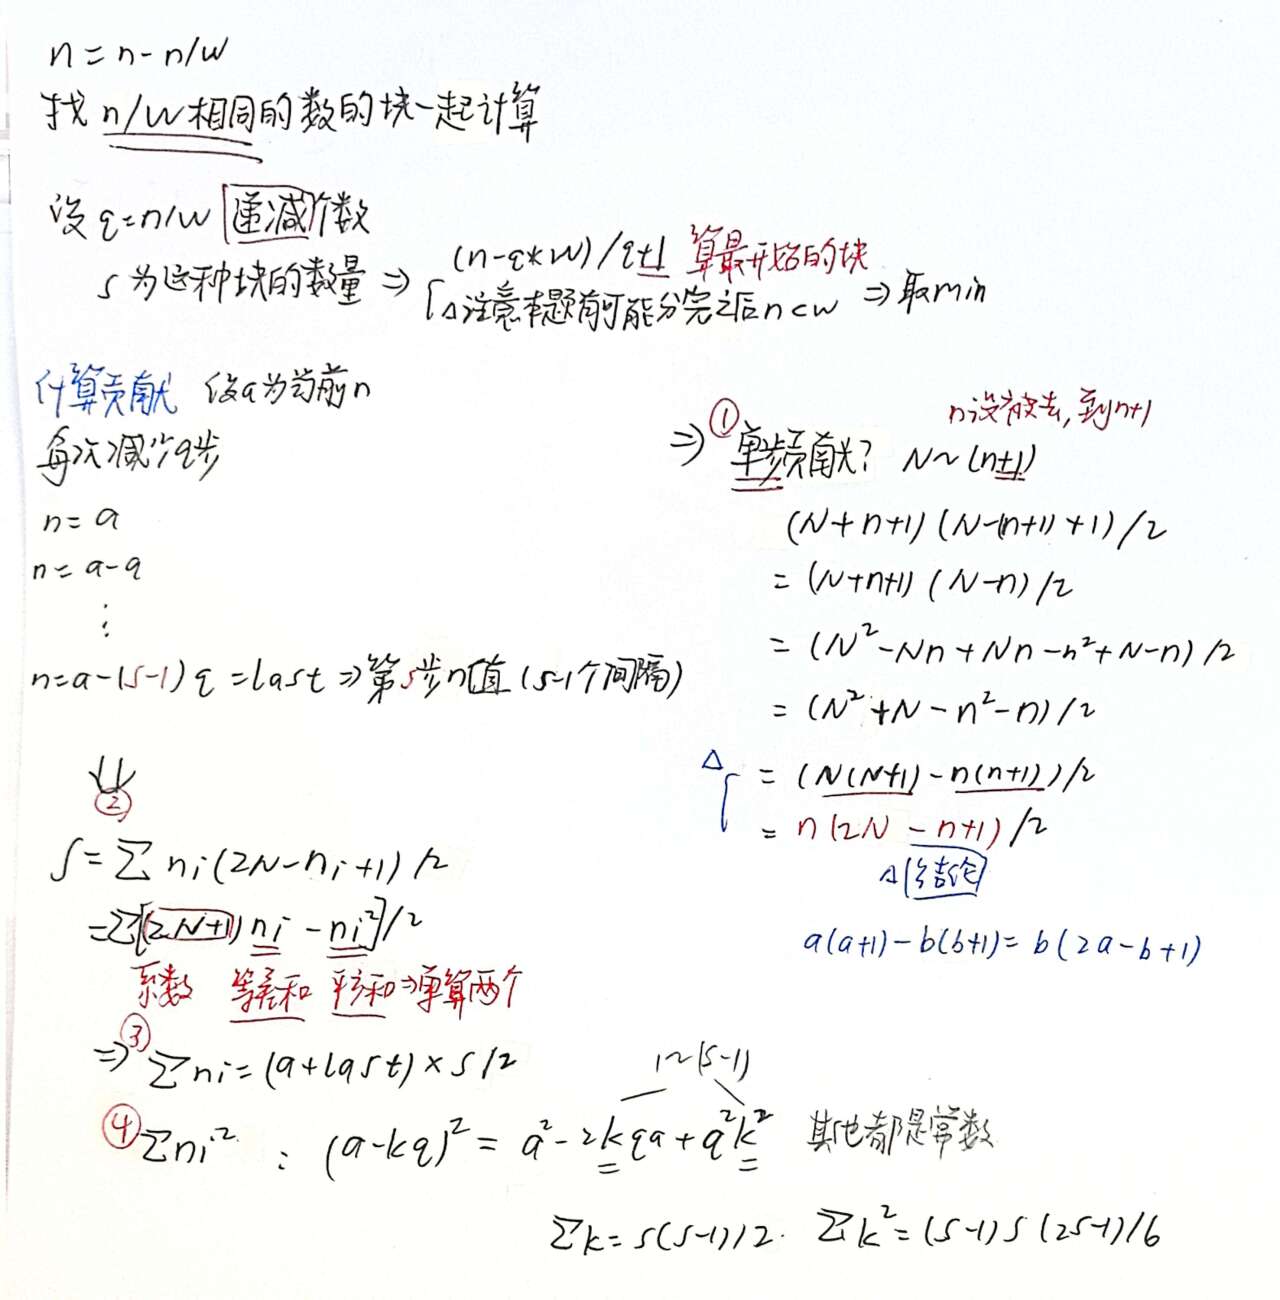 n = n - n/w
找 n/w相同的数的块一起计算
设 q=n/w 递减个数
s 为这种块的数量 ⇒ (n-q*w)/q+1 算最开始的块
△注意本题有可能分完之后n<w ⇒ 取min
计算贡献 设a为当前n
每次减少q步
n = a
n = a-q
⋮
n=a-(s-1)q =last ⇒ 第s步n值 (s-1个间隔)
⇒ ① 单步贡献? N~(n+1)
n没被去,到n+1
(N+n+1)(N-(n+1)+1)/2
= (N+n+1)(N-n)/2
= (N²-Nn+Nn-n²+N-n)/2
= (N²+N-n²-n)/2
△ = (N(N+1)-n(n+1))/2
= n(2N-n+1)/2
△结论
a(a+1)-b(b+1)= b(2a-b+1)
②
S = Σ ni(2N-ni+1)/2
=Σ[(2N+1)ni-ni²]/2
系数 等差和 平方和⇒单算两个
⇒ ③ Σni=(a+last)×s/2
1~(s-1)
④ Σni² : (a-kq)² = a²-2kqa+q²k² 其他都是常数
Σk=s(s-1)/2. Σk²=(s-1)s(2s-1)/6